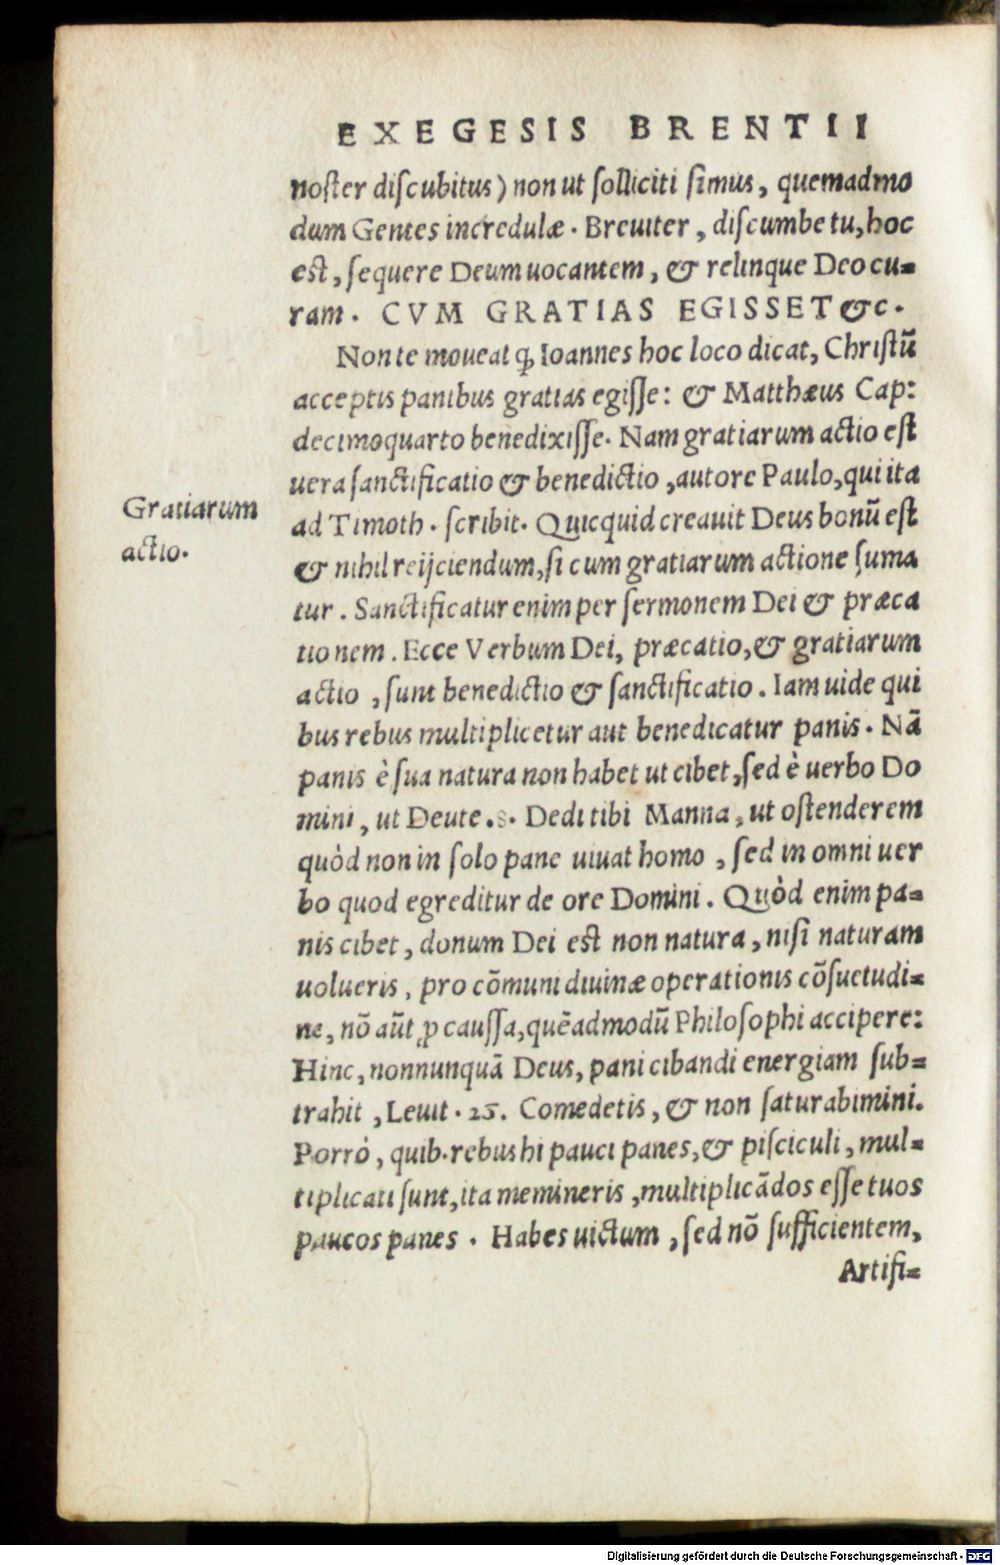 EXEGESIS BRENTII
noſter diſcubitus) non ut ſolliciti ſimus, quemadmo
dum Gentes incredulæ. Breuiter, diſcumbe tu, hoc
eſt, ſequere Deum uocantem, & relinque Deo cu=
ram. CVM GRATIAS EGISSET &c.
Non te moueat ꝙ Ioannes hoc loco dicat, Chriſtū
acceptis panibus gratias egiſſe: & Matthæus Cap:
decimoquarto benedixiſſe. Nam gratiarum actio eſt
uera ſanctificatio & benedictio, autore Paulo, qui ita
Gratiarum
actio.
ad Timoth. ſcribit. Quicquid creauit Deus bonū eſt
& nihil reijciendum, ſi cum gratiarum actione ſuma
tur. Sanctificatur enim per ſermonem Dei & præca
tionem. Ecce Verbum Dei, præcatio, & gratiarum
actio, ſunt benedictio & ſanctificatio. Iam uide qui
bus rebus multiplicetur aut benedicatur panis. Nā
panis è ſua natura non habet ut cibet, ſed è uerbo Do
mini, ut Deute. 8. Dedi tibi Manna, ut oſtenderem
quòd non in ſolo pane uiuat homo, ſed in omni uer
bo quod egreditur de ore Domini. Quòd enim pa=
nis cibet, donum Dei eſt non natura, niſi naturam
uolueris, pro cōmuni diuinæ operationis cōſuetudi=
ne, nō aūt ꝓ cauſſa, quēadmodū Philoſophi accipere:
Hinc, nonnunquā Deus, pani cibandi energiam ſub=
trahit, Leuit. 25. Comedetis, & non ſaturabimini.
Porrò, quib. rebus hi pauci panes, & piſciculi, mul=
tiplicati ſunt, ita memineris, multiplicādos eſſe tuos
paucos panes. Habes uictum, ſed nō ſufficientem,
Artifi=
Digitalisierung gefördert durch die Deutsche Forschungsgemeinschaft - DFG